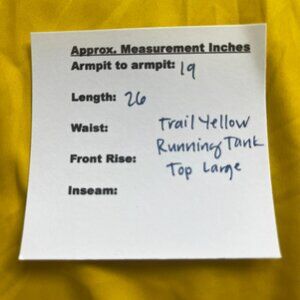 Approx. Measurement Inches
Armpit to armpit: 19
Length: 26
Waist:
Trail Yellow
Front Rise:
Running Tank
Top Large
Inseam: